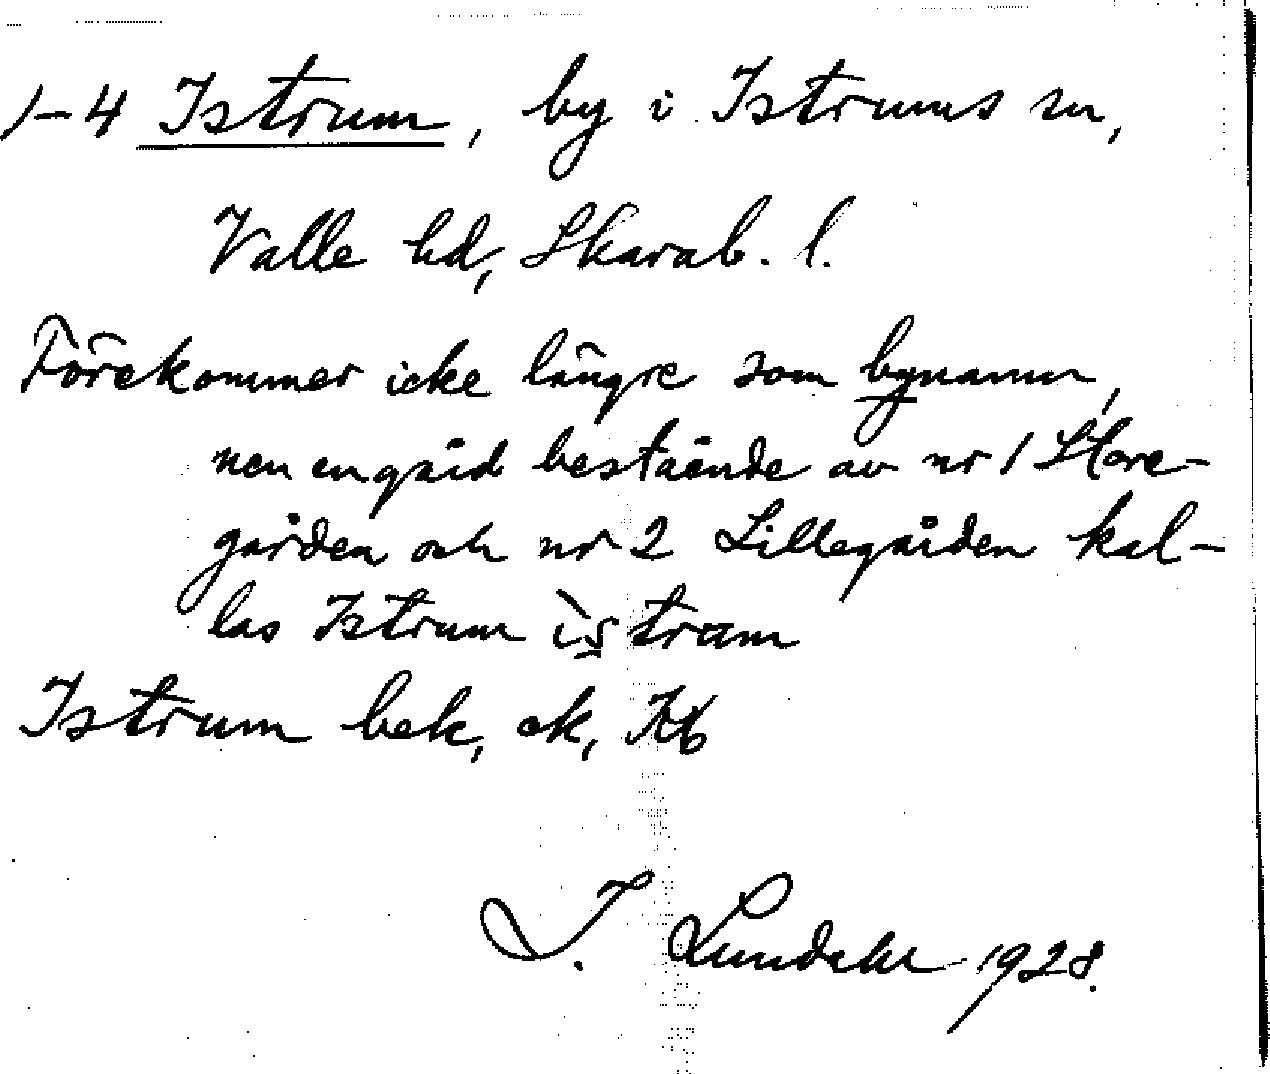 1-4 Istrum, by i Istrums sn,
Valle hd, Skarab. l.
Förekommer icke längre som bynamn,
men en gård bestående av nr 1 Store-
gården och nr 2 Lillegården kal-
las Istrum ìstram
Istrum bek, ek, Kb
I. Lundahl 1928.